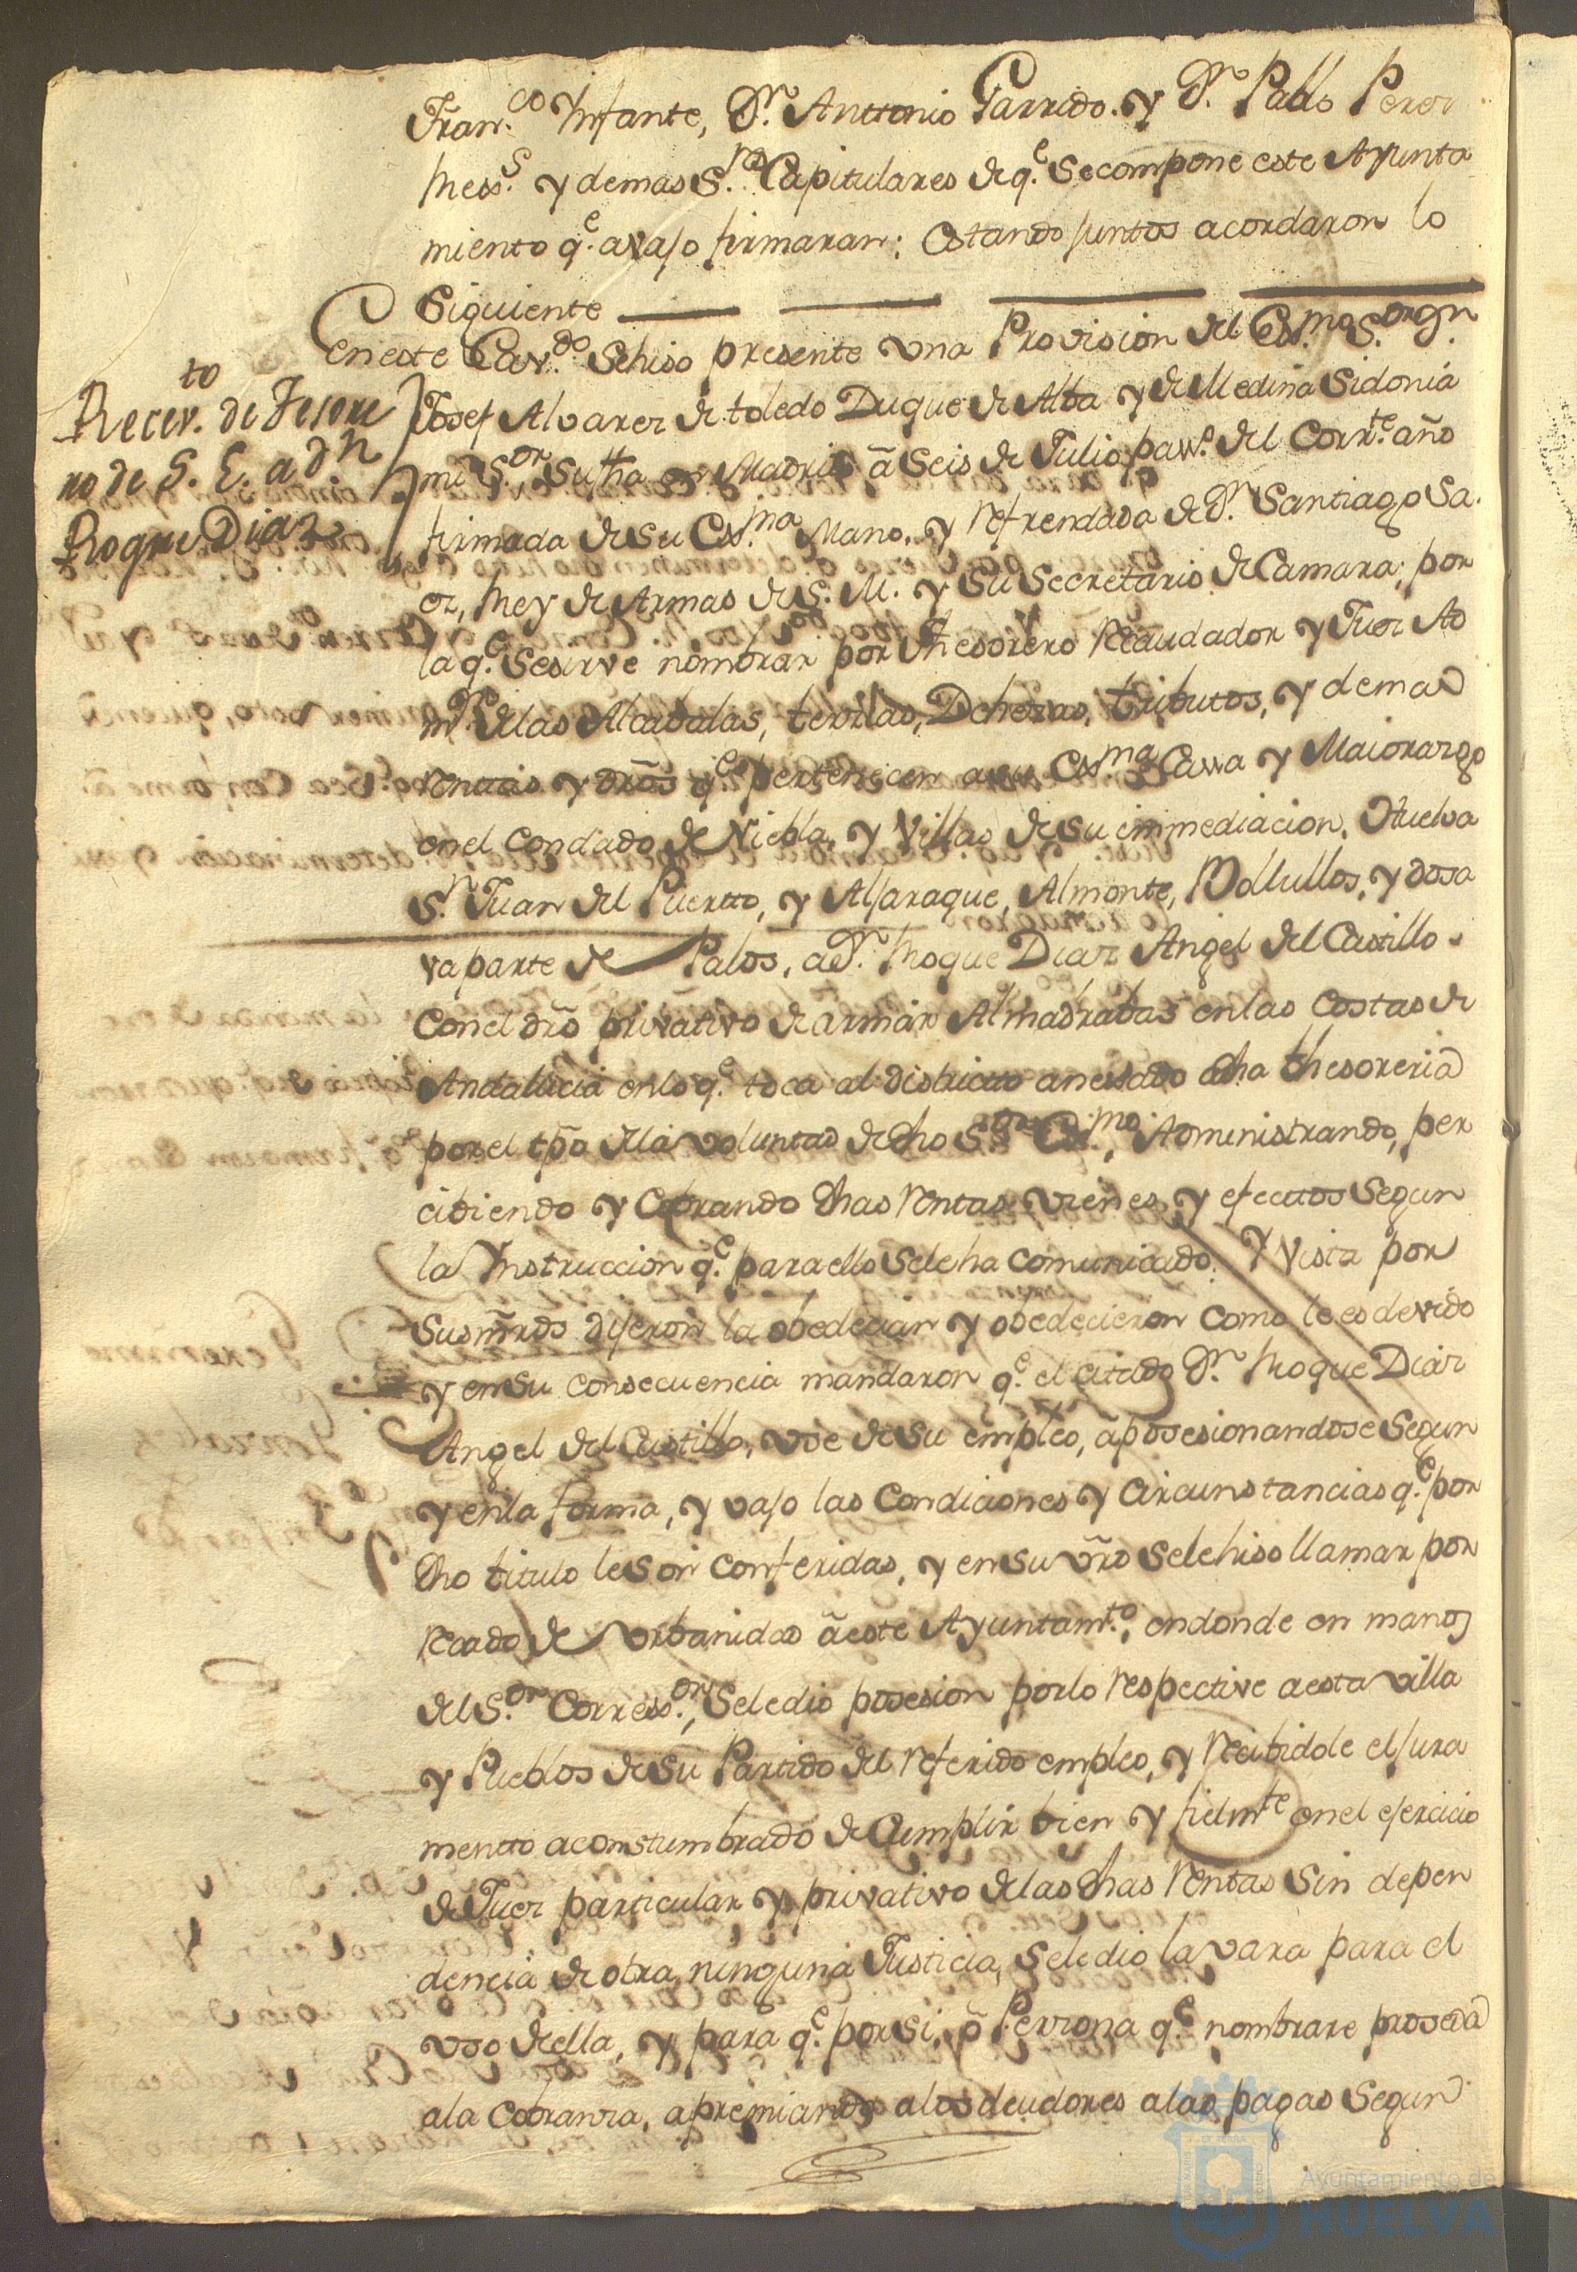 Fran.co Ynfante, Dn. Anttonio Garrido. y Dn. Pablo Perez
Mess.s y demas S.res Capitulares de q.e Secompone este Ayunta
miento q.e avajo firmaran; Estando juntos acordaron lo
Siguiente
Recev.to de Tesore
ro de S. E. a dn
Roque Diaz
eneste Cav.do Sehiso presente una Provision del Ex.mo S.or Dn.
Josef Alvarez de toledo Duque de Alba y de Medina Sidonia
mi S.or, Su fha en Madrid â Seis de Julio pass.o del Corr.te año
firmada de su Ex.ma Mano, y refrendada de Dn. Santiago Sa.
ez, Rey de Armas de S. M. y Su Secretario de Camara; por
la q.e Sesirve nombrar por Thesorero Recaudador y Juez Ad
m.or delas Alcabalas, tercias, Dehezas, tributos, y demas
rentas y dros q.e pertenecen asu Ex.ma Cassa y Maiorazgo
enel Condado de Niebla, y Villas de su immediacion, Huelva
Sn. Juan del Puertto, y Alfaraque, Almonte, Bollullos, y dosa
va parte de Palos, a Dn. Roque Diaz Angel del Castillo.
Conel dro privativo de armar Almadrabas enlas Costas de
Andalucia enlo q.e toca al districtto anexado adha thesoreria
porel tpo dela voluntad de dho S.or Ex.mo, Administrando, per
cibiendo y Cobrando dhas rentas vienes, y efecttos Segun
la Ynstruccion q.e paraello Seleha comunicado. Y Vista por
Susmrds dijeron la obedecian y obedecieron como lees devido
y ensu consecuencia mandaron q.e el citado Dn. Roque Diaz
Angel del Castillo, use de su empleo, aposesionandose Segun
y enla forma, y vajo las Condiciones y Circunstancias q.e por
dho titulo leson conferidas, y ensu vro Selehiso llamar por
recado de urbanidad âeste Ayuntam.to, endonde en manos
del S.or Corress.or, Seledio posesion porlo respective aesta villa
y Pueblos de su Partido del referido empleo, y recibidole el jura
mentto acomstumbrado de Cumplir bien y fielm.te enel ejercicio
de Juez particular y privativo delas dhas rentas Sin depen
dencia de otra ninguna Justicia, Seledio la vara para el
uso deella, y para q.e porsi, ô Perzona q.e nombrare proseda
ala Cobranza, apremiando alos deudores alas pagas Segun
Ayuntamiento de
HUELVA